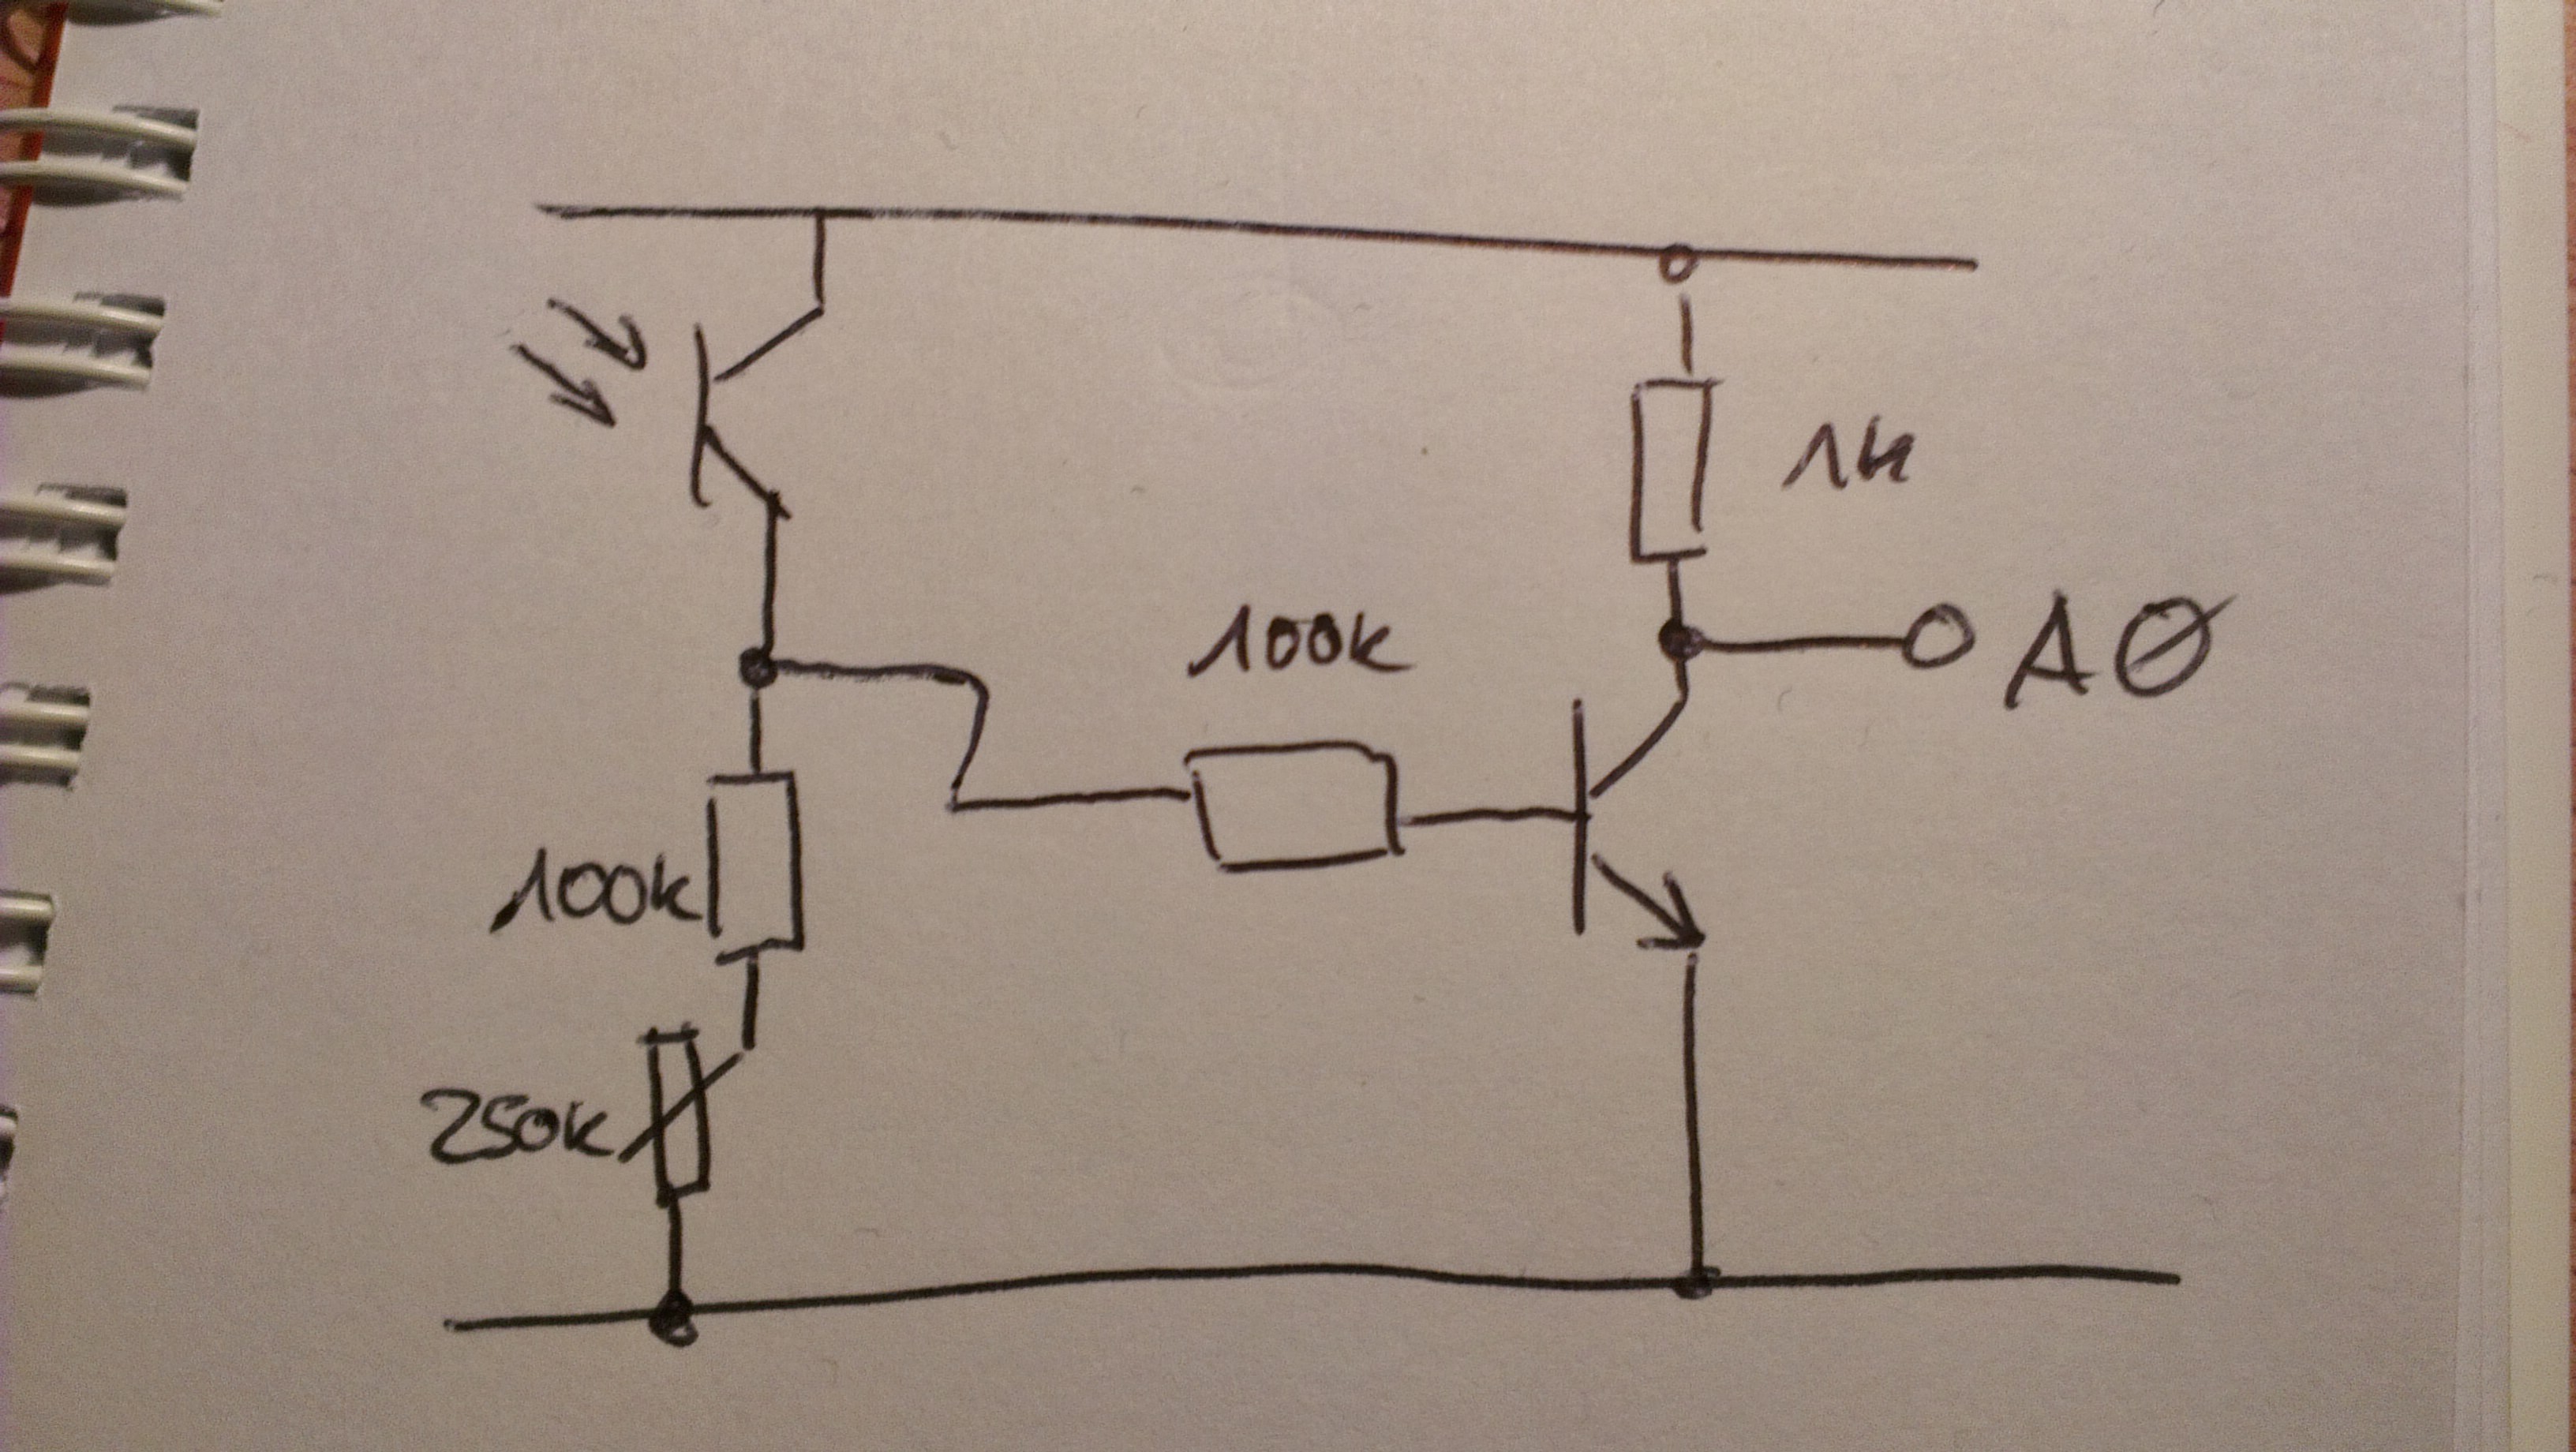 1k
100k
AØ
100k
250k